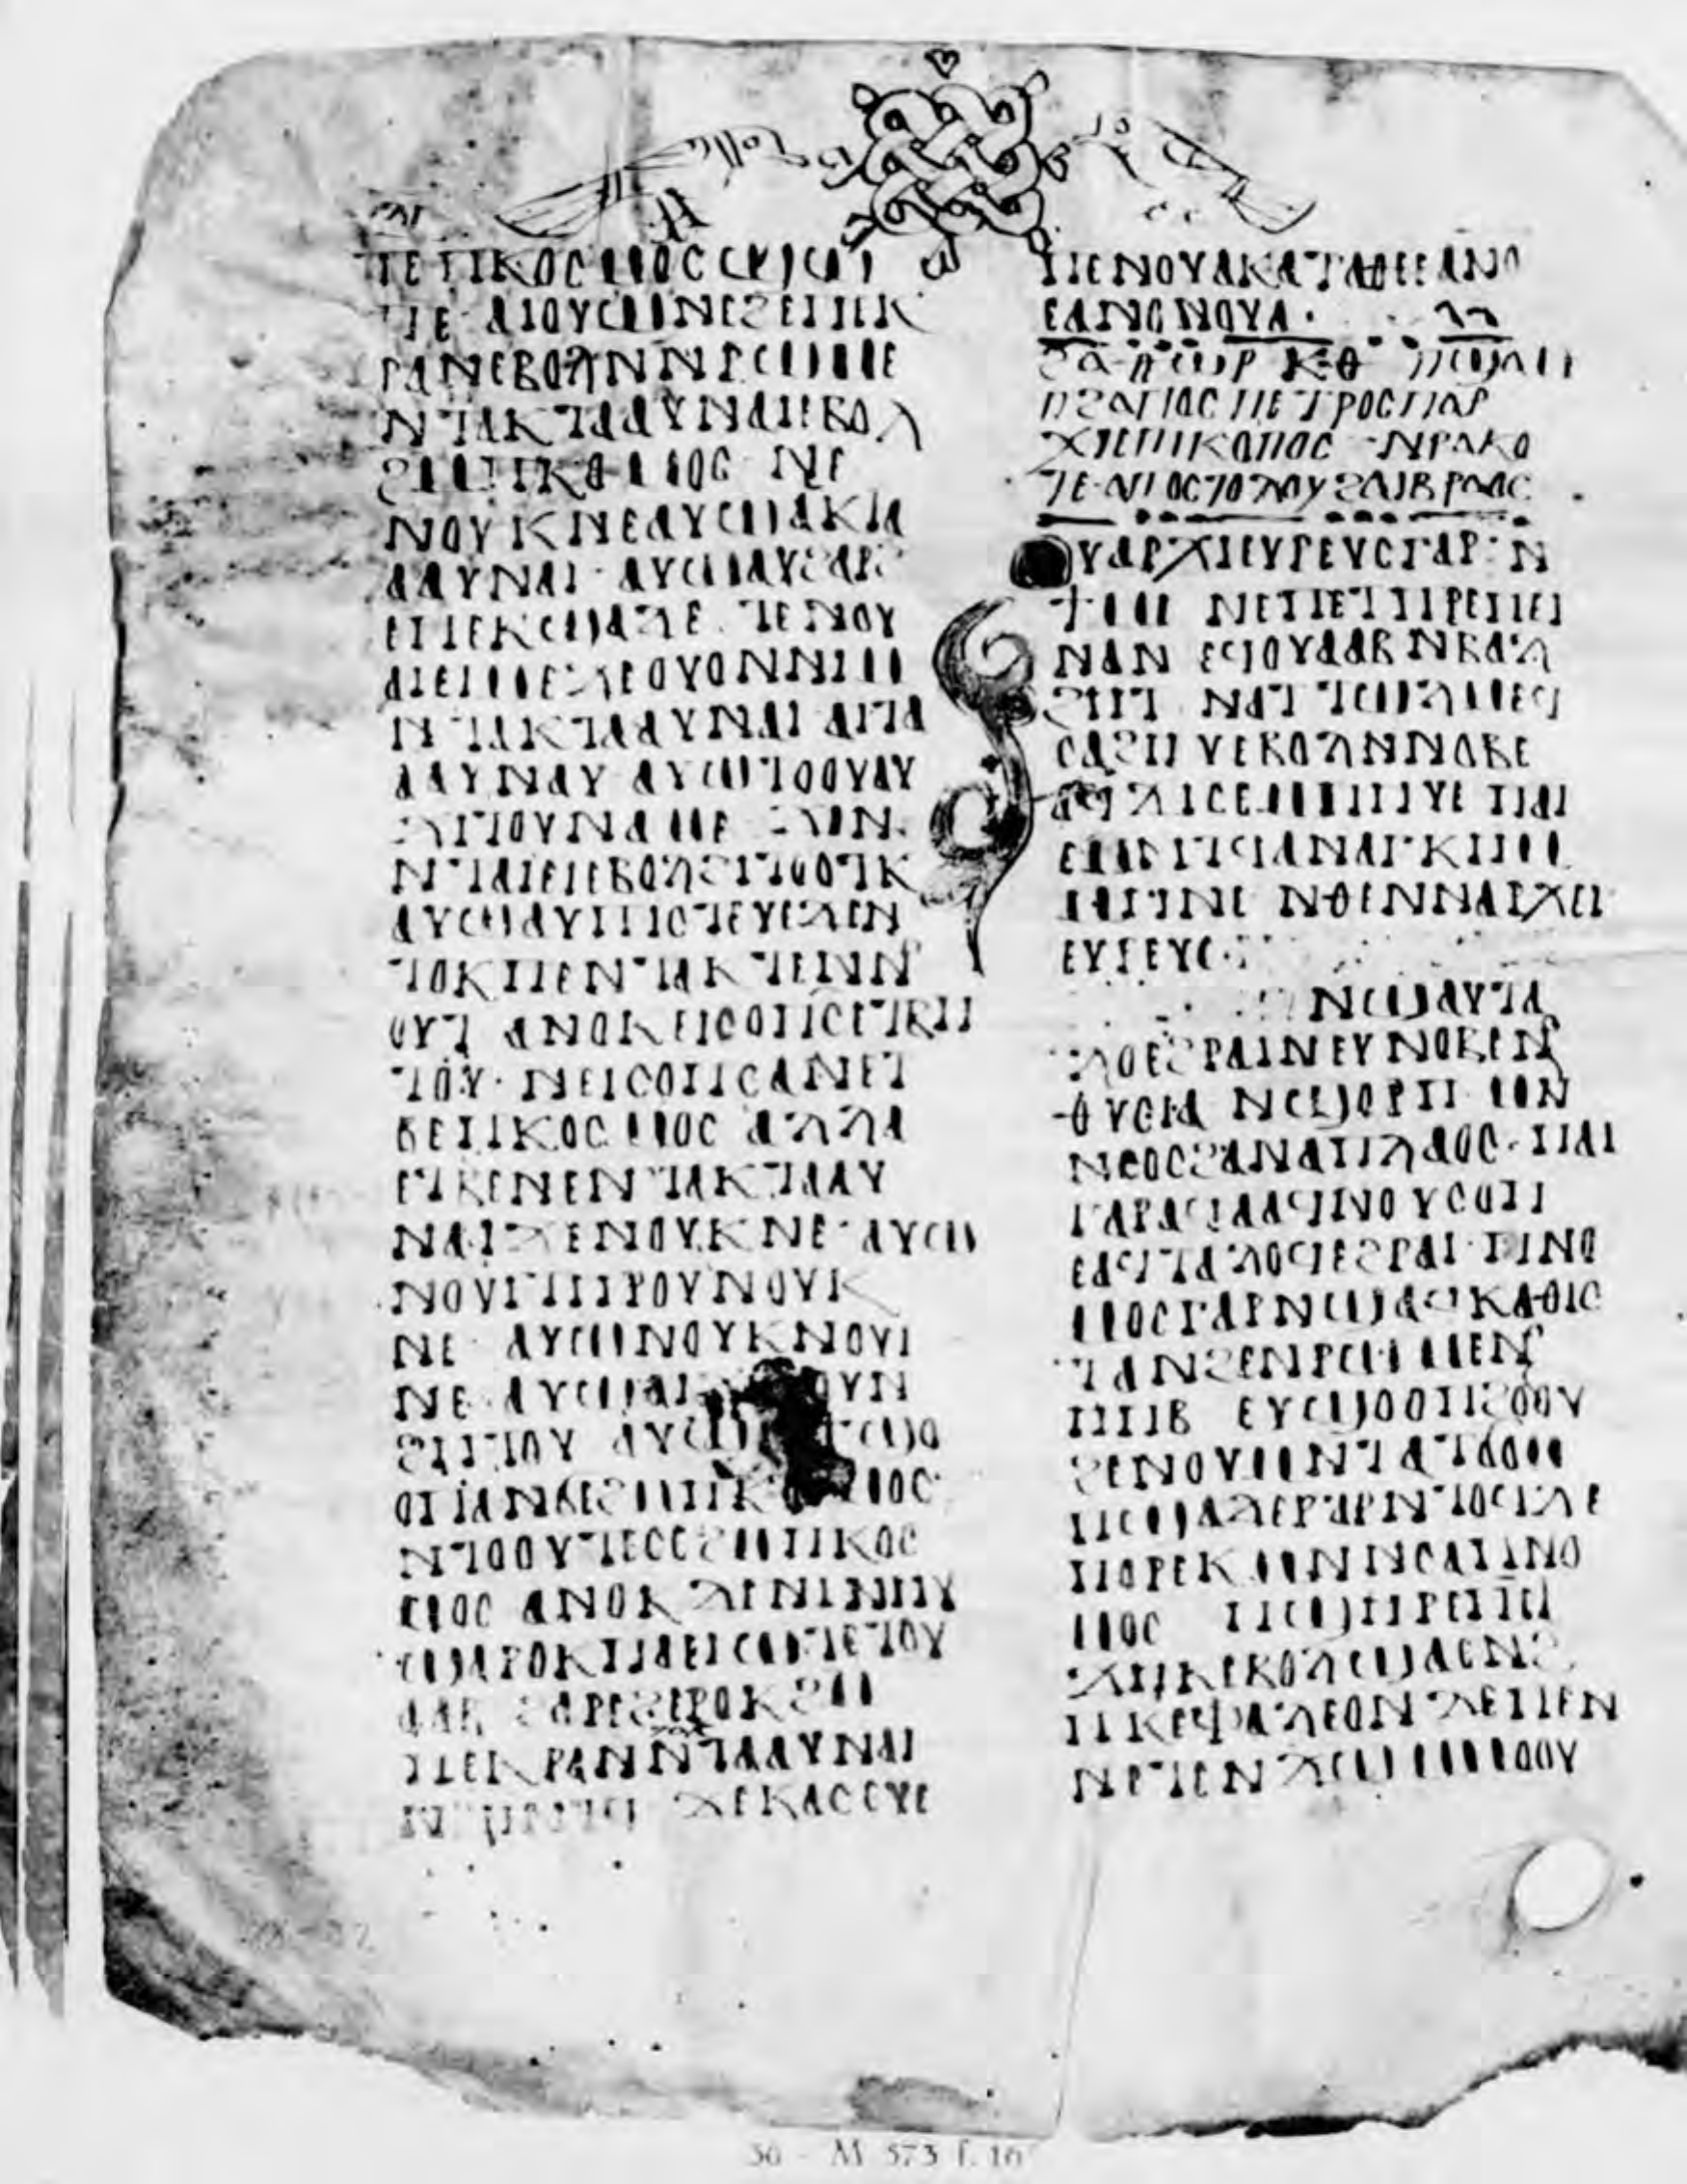 ⲧⲉⲡⲕⲟⲥⲙⲟⲥϣⲱ
ⲡⲉ ⲁⲓⲟⲩⲱⲛⲉϩⲉⲡⲉⲕ
ⲣⲁⲛⲉⲃⲟⲗⲛⲛⲣⲱⲙⲉ
ⲛⲧⲁⲕⲧⲁⲁⲩⲛⲁⲓⲉⲃⲟⲗ
ϩⲙⲡⲕⲟⲥⲙⲟⲥ ⲛⲉ
ⲛⲟⲩⲕⲛⲉⲁⲩⲱⲁⲕⲧⲁ
ⲁⲩⲛⲁⲓ · ⲁⲩⲱⲁⲩϩⲁⲣϩ
ⲉⲡⲉⲕϣⲁϫⲉ ⲧⲉⲛⲟⲩ
ⲁⲓⲉⲓⲙⲉϫⲉⲟⲩⲟⲛⲛⲓⲙ
ⲛⲧⲁⲕⲧⲁⲁⲩⲛⲁⲓ ⲁⲓⲧⲁ
ⲁⲩⲛⲁⲩ ⲁⲩⲱⲛⲧⲟⲟⲩⲁⲩ
ϫⲓⲧⲟⲩⲛⲁⲙⲉ ϫⲓⲛ
ⲛⲧⲁⲓⲉⲓⲉⲃⲟⲗϩⲓⲧⲟⲟⲧⲕ
ⲁⲩⲱⲁⲩⲡⲓⲥⲧⲉⲩⲉϫⲉⲛ
ⲧⲟⲕⲡⲉⲛⲧⲁⲕⲧⲉⲛⲛ
ⲟⲩⲧ ⲁⲛⲟⲕⲉⲓⲥⲟⲡⲥⲉⲧⲃⲏ
ⲧⲟⲩ · ⲛⲉⲓⲥⲟⲡⲥⲁⲛⲉⲧ
ⲃⲉⲡⲕⲟⲥⲙⲟⲥ ⲁⲗⲗⲁ
ⲉⲧⲃⲉⲛⲉⲛⲧⲁⲕⲧⲁⲁⲩ
ⲛⲁⲓϫⲉⲛⲟⲩⲕⲛⲉ · ⲁⲩⲱ
ⲛⲟⲩⲓⲧⲏⲣⲟⲩⲛⲟⲩⲕ
ⲛⲉ ⲁⲩⲱⲛⲟⲩⲕⲛⲟⲩⲓ
ⲛⲉ ⲁⲩⲱⲁⲓ ⲟⲩⲛ
ϩⲏⲧⲟⲩ ⲁⲩⲱ ϣⲟ
ⲟⲡⲁⲛϭⲉϩⲙⲡⲕ ⲙⲟⲥ
ⲛⲧⲟⲟⲩⲧⲉⲥⲉϩⲙⲡⲕⲟⲥ
ⲙⲟⲥ ⲁⲛⲟⲕϫⲉⲛⲓⲛⲏⲩ
ϣⲁⲣⲟⲕⲡⲁⲉⲓⲱⲧⲉⲧⲟⲩ
ⲁⲁⲃ ϩⲁⲣⲉϩⲉⲣⲟⲕϩⲙ
ⲡⲉⲕⲣⲁⲛⲛⲧⲁⲁⲩⲛⲁⲓ
ϫⲉⲕⲁⲥⲉⲩⲉ
ϣⲱ
ⲡⲉⲛⲟⲩⲁⲕⲁⲧⲁⲑⲉⲉⲁⲛⲟ
ⲉⲁⲛⲟⲛⲟⲩⲁ ·
ⲡϩⲁⲅⲓⲟⲥⲡⲉⲧⲣⲟⲥⲡⲁⲣ
ⲭⲏⲉⲡⲓⲕⲟⲡⲟⲥ ⲛⲣⲁⲕⲟ
ⲧⲉ ⲁⲡⲟⲥⲧⲟⲗⲟⲩϩⲁⲓⲃⲣⲁⲟⲥ
ⲟⲩⲁⲣⲭⲓⲉⲩⲣⲉⲩⲥⲅⲁⲣ ⲛ
ϯⲙⲓ ⲛⲉⲧⲡⲉⲧⲡⲣⲉⲡⲉⲓ
ⲛⲁⲛ ⲉϥⲟⲩⲁⲁⲃⲛⲃⲁⲗ
ϩⲏⲧ ⲛⲁⲧⲧⲱⲗⲙⲉϥ
ⲥⲁϩⲏⲩⲉⲃⲟⲗⲛⲛⲟⲃⲉ
ⲁϥϫⲓⲥⲉⲙⲡⲏⲩⲉ ⲡⲁⲓ
ⲉⲙⲛⲧϥⲁⲛⲁⲅⲕⲏⲙ
ⲙⲏⲛⲉ ⲛⲑⲉⲛⲛⲁⲣⲭⲉⲓ
ⲉⲩⲣⲉⲩⲥ ·
ⲛϣⲁⲩⲧⲁ
ⲗⲟⲉϩⲣⲁⲓⲛⲉⲩⲛⲟⲃⲉⲛ
ⲑⲩⲥⲓⲁ ⲛϣⲟⲣⲡ ⲙⲛ
ⲛⲥⲟⲥϩⲁⲛⲁⲡⲗⲁⲟⲥ · ⲡⲁⲓ
ⲅⲁⲣⲁϥⲁⲁϥⲛⲟⲩⲥⲟⲡ
ⲉⲁϥⲧⲁⲗⲟϥⲉϩⲣⲁⲓ · ⲡⲛⲟ
ⲙⲟⲥⲅⲁⲣⲛϣⲁϥⲕⲁⲑⲓⲥ
ⲧⲁⲛϩⲉⲛⲣⲱⲙⲉⲛ
ⲏⲏⲃ ⲉⲩϣⲟⲟⲡϩⲟⲩ
ϩⲉⲛⲟⲩⲙⲛⲧⲁⲧϭⲟⲙ
ⲡϣⲁϫⲉⲣⲁⲣⲛⲧⲟϥϫⲉ
ⲡⲟⲣⲉⲕⲙⲛⲛⲥⲁⲡⲛⲟ
ⲙⲟⲥ ⲡϣⲏⲣⲉⲡⲉⲓ
ϫⲏⲕⲉⲃⲟⲗϣⲁⲉⲛϩ
ⲡⲕⲉⲫⲁⲗⲉⲟⲛⲇⲉⲡⲉⲛ
ⲛⲉⲧⲉⲛϫⲱⲙⲙⲟⲟⲩ
56 - M 573 f. 16